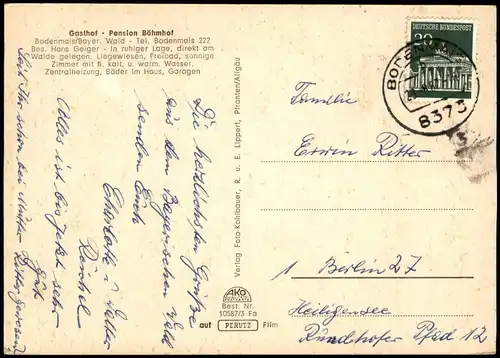 Gasthof - Pension Böhmhof
Bodenmais/Bayer. Wald - Tel. Bodenmais 222
Bes. Hans Geiger - In ruhiger Lage, direkt am
Walde gelegen. Liegewiesen, Freibad, sonnige
Zimmer mit fl. kalt. u. warm. Wasser.
Zentralheizung, Bäder im Haus, Garagen
Die herzlichsten Grüße
aus dem Bayerischen Wald
senden Euch
Charlotte u. Walter
Alles ist bis jetzt sehr
gut
Seid Ihr schon bei Mutter Ritter gewesen
Verlag Foto-Kohlbauer, R. u. E. Lippert, Pfronten/Allgäu
AKO
Best. Nr.
10587/3 Fa
auf PERUTZ Film
DEUTSCHE BUNDESPOST
8373
Familie
Erwin Ritter
1 Berlin 27
Heiligensee
Rundhofer Pfad 12